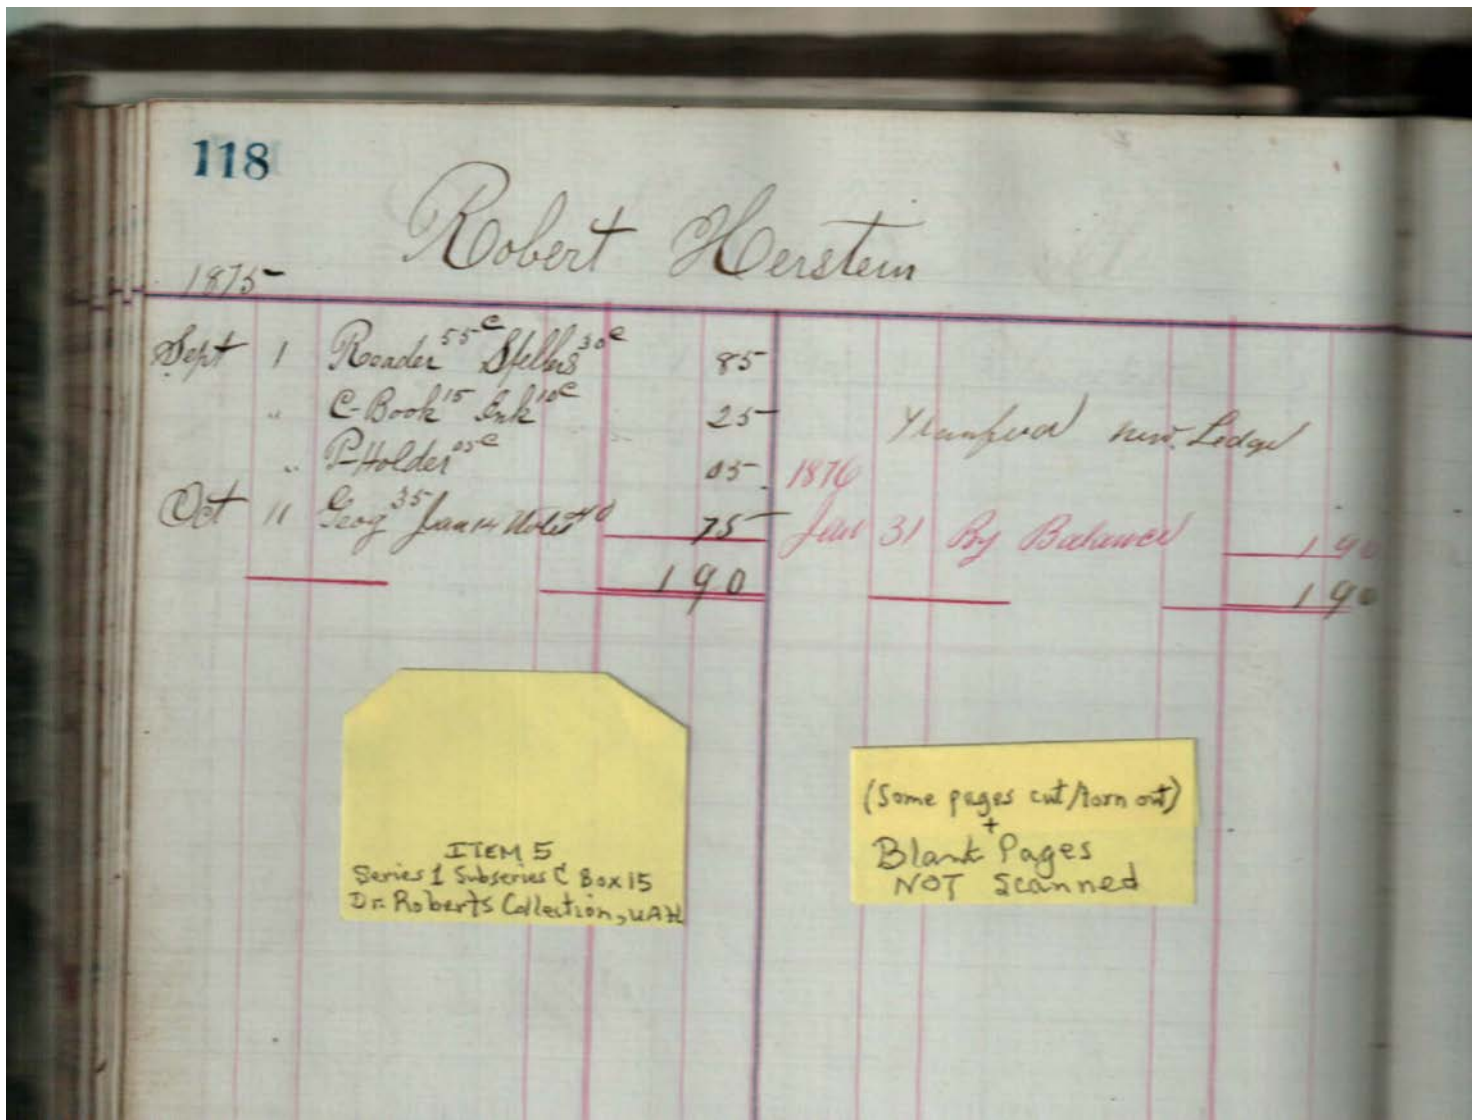 118
Robert Herstein
1875
Sept 1 Reader 55c Spellers 30c 85
" C-Book 15 Ink 10c 25
" P-Holder 05c 05
Oct 11 Geog 35 40 75
190
new Ledge
1876
Jan 31 By Balance 190
190
ITEM 5
Series 1 Subseries C Box 15
Dr. Roberts Collection, UAH
(Some pages cut/torn out)
+
Blank Pages
NOT Scanned